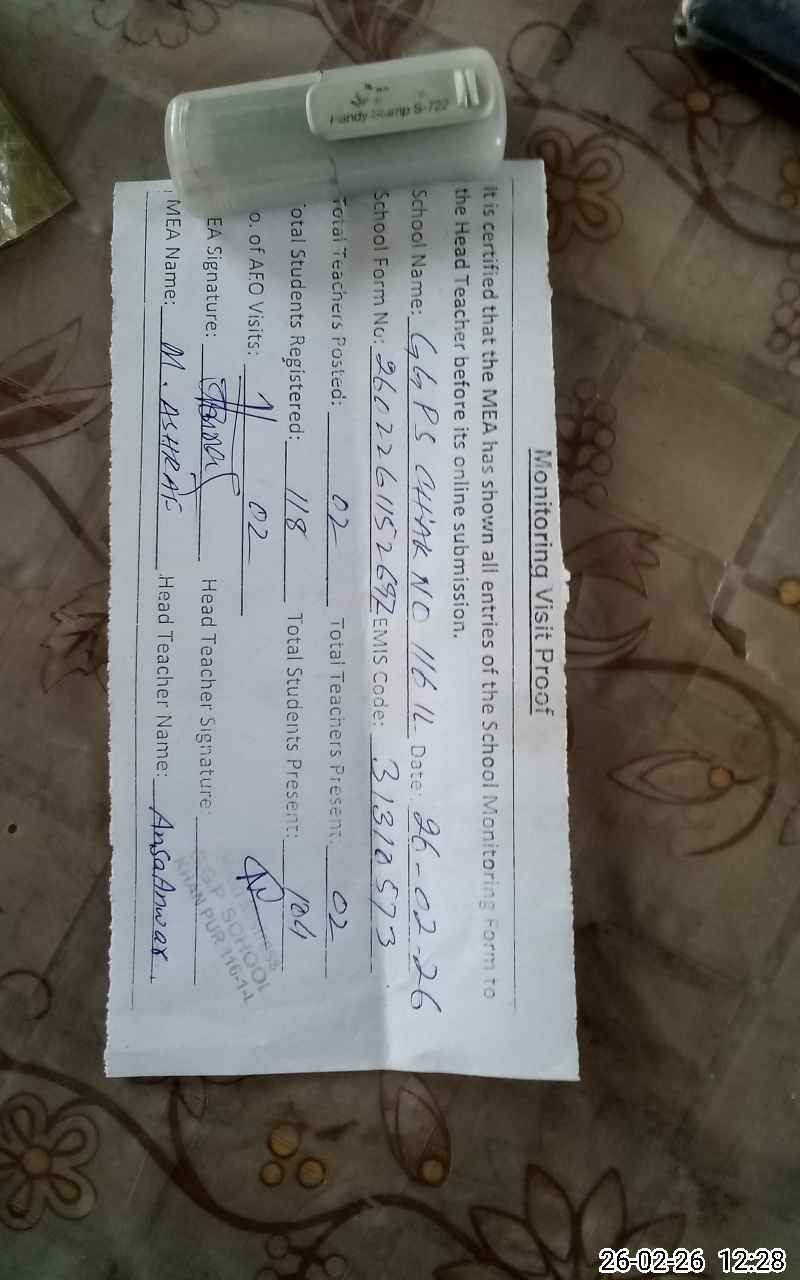 Handy Stamp S-722
Monitoring Visit Proof
It is certified that the MEA has shown all entries of the School Monitoring Form to
the Head Teacher before its online submission.
School Name: GGPS CHAK NO 116 1L Date: 26-02-26
School Form No: 2602261152692 EMIS Code: 31310573
Total Teachers Posted: 02 Total Teachers Present: 02
Total Students Registered: 118 Total Students Present: 104
o. of AEO Visits: 02
EA Signature: Head Teacher Signature:
MEA Name: M. ASHRAF Head Teacher Name: Ansa Anwar
G.G.P SCHOOL
KHAN PUR 116-1-L
26-02-26 12:28